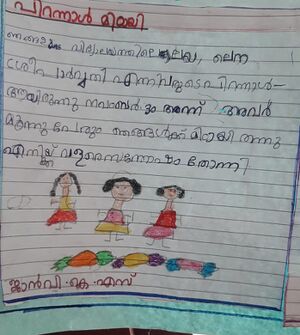 പിറന്നാൾ മിഠായി
ഞങ്ങളുടെ വിദ്യാലയത്തിലെ ലയ, ലെന
ശ്രീപാർവ്വതി എന്നിവരുടെ പിറന്നാൾ-
ആയിരുന്നു നവംബർ അന്ന് അവർ
മൂന്നു പേരും ഞങ്ങൾക്ക് മിഠായി തന്നു
എനിയ്ക്ക് വളരെസന്തോഷം തോന്നി
ജാൻവി·കെ·എസ്